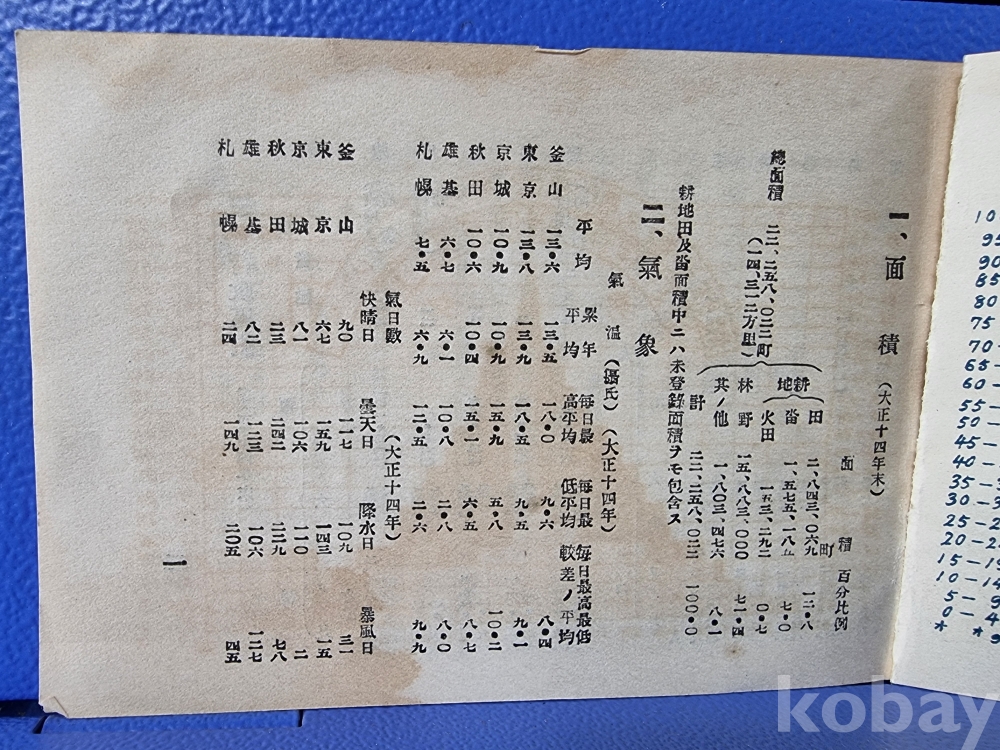 一、面積(大正十四年末)
面積 百分比例
町
總面積 二二、二五八、〇二二町
(一四、三一二方里)
耕地
田 二、八四三、〇六九 一二・八
畓 一、五七五、一八五 七・〇
火田 一五三、二九二 〇・七
林野 一五、八八三、〇〇〇 七一・四
其ノ他 一、八〇三、四七六 八・一
計 二二、二五八、〇二二 一〇〇・〇
耕地田及畓面積中ニハ未登錄面積ヲモ包含ス
二、氣象
氣溫(攝氏)(大正十四年)
平均 累年平均 每日最高平均 每日最低平均 每日最高最低較差ノ平均
釜山 一三・六 一三・五 一八・〇 九・六 八・四
東京 一三・八 一三・九 一八・五 九・五 九・一
京城 一〇・九 一〇・九 一五・九 五・八 一〇・二
秋田 一〇・六 一〇・四 一五・一 六・五 八・七
雄基 六・七 六・一 一〇・八 二・八 八・〇
札幌 七・五 六・九 一二・五 二・六 九・九
氣日數(大正十四年)
快晴日 曇天日 降水日 暴風日
釜山 九〇 一一七 一〇九 三一
東京 六七 一五九 一四三 一五
京城 八一 一〇六 一一〇 二
秋田 二三 二四二 二二九 七八
雄基 八二 一二三 一〇六 一二七
札幌 二四 一四九 二〇五 四五
一
10
95
90
85
80
75
70-
65-
60-
55-
50-
45-
40-
35-3
30-3
25-2
20-2
15-19
10-14
5-9
0-4
* *9
kobay